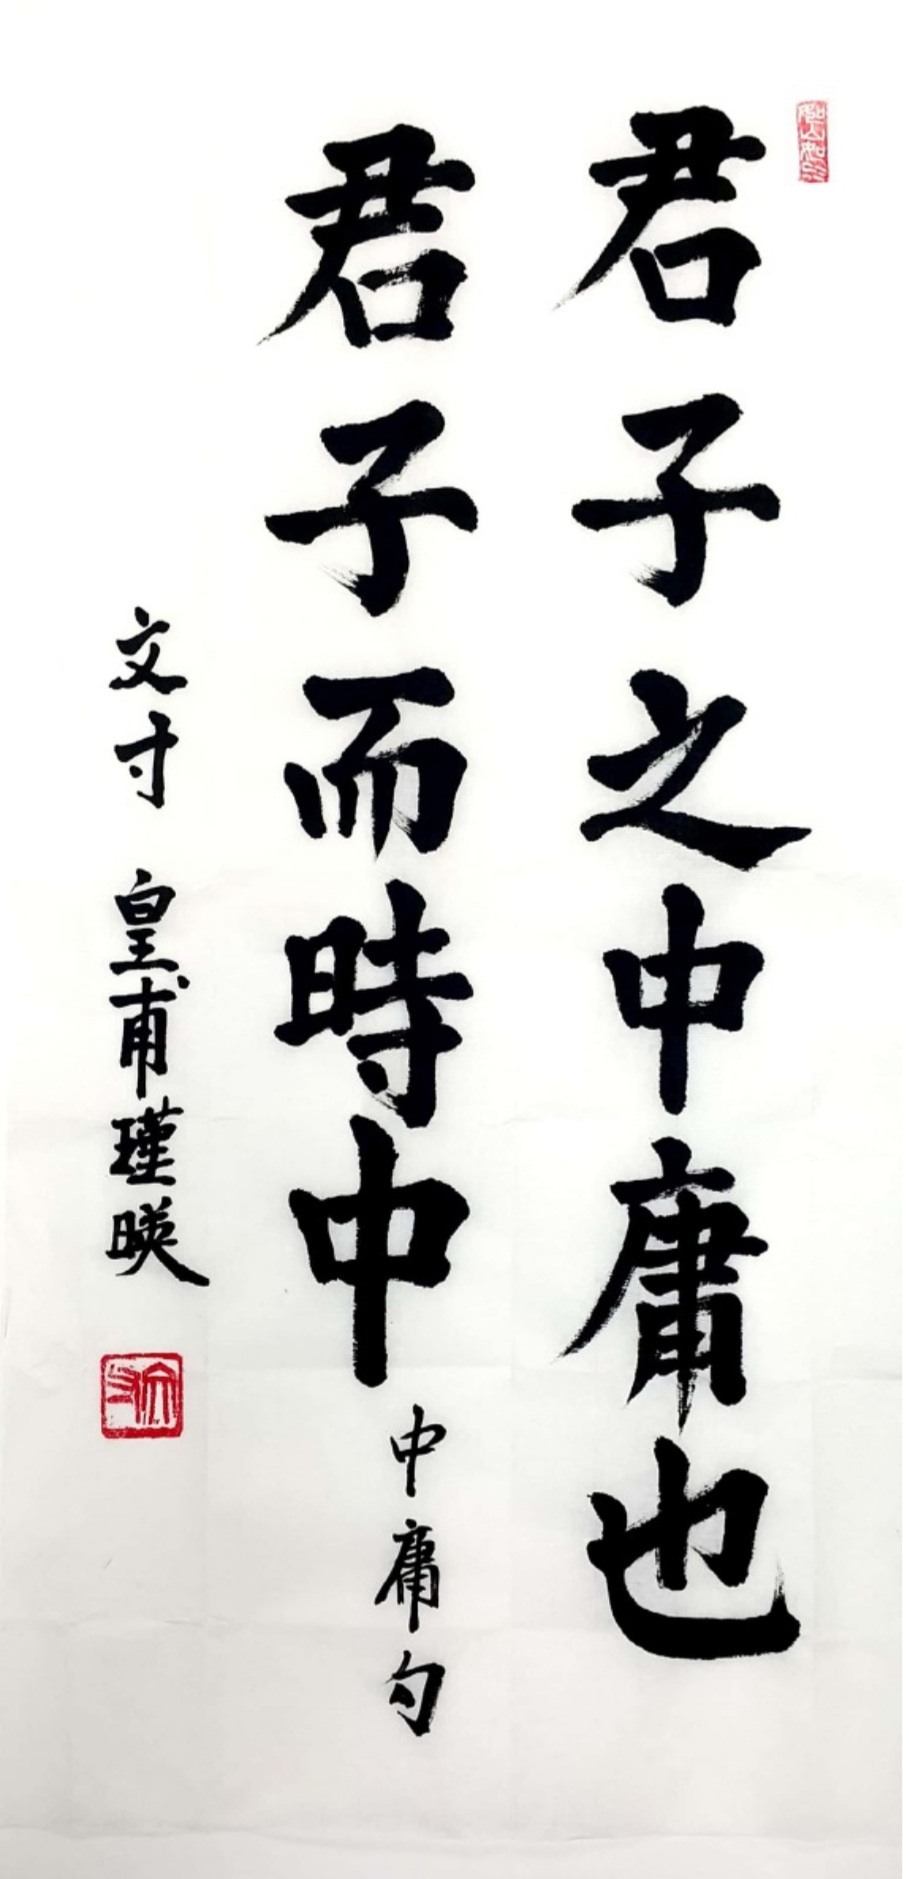 君子之中庸也
君子而時中
中庸勺
文寸 皇甫瑾暎